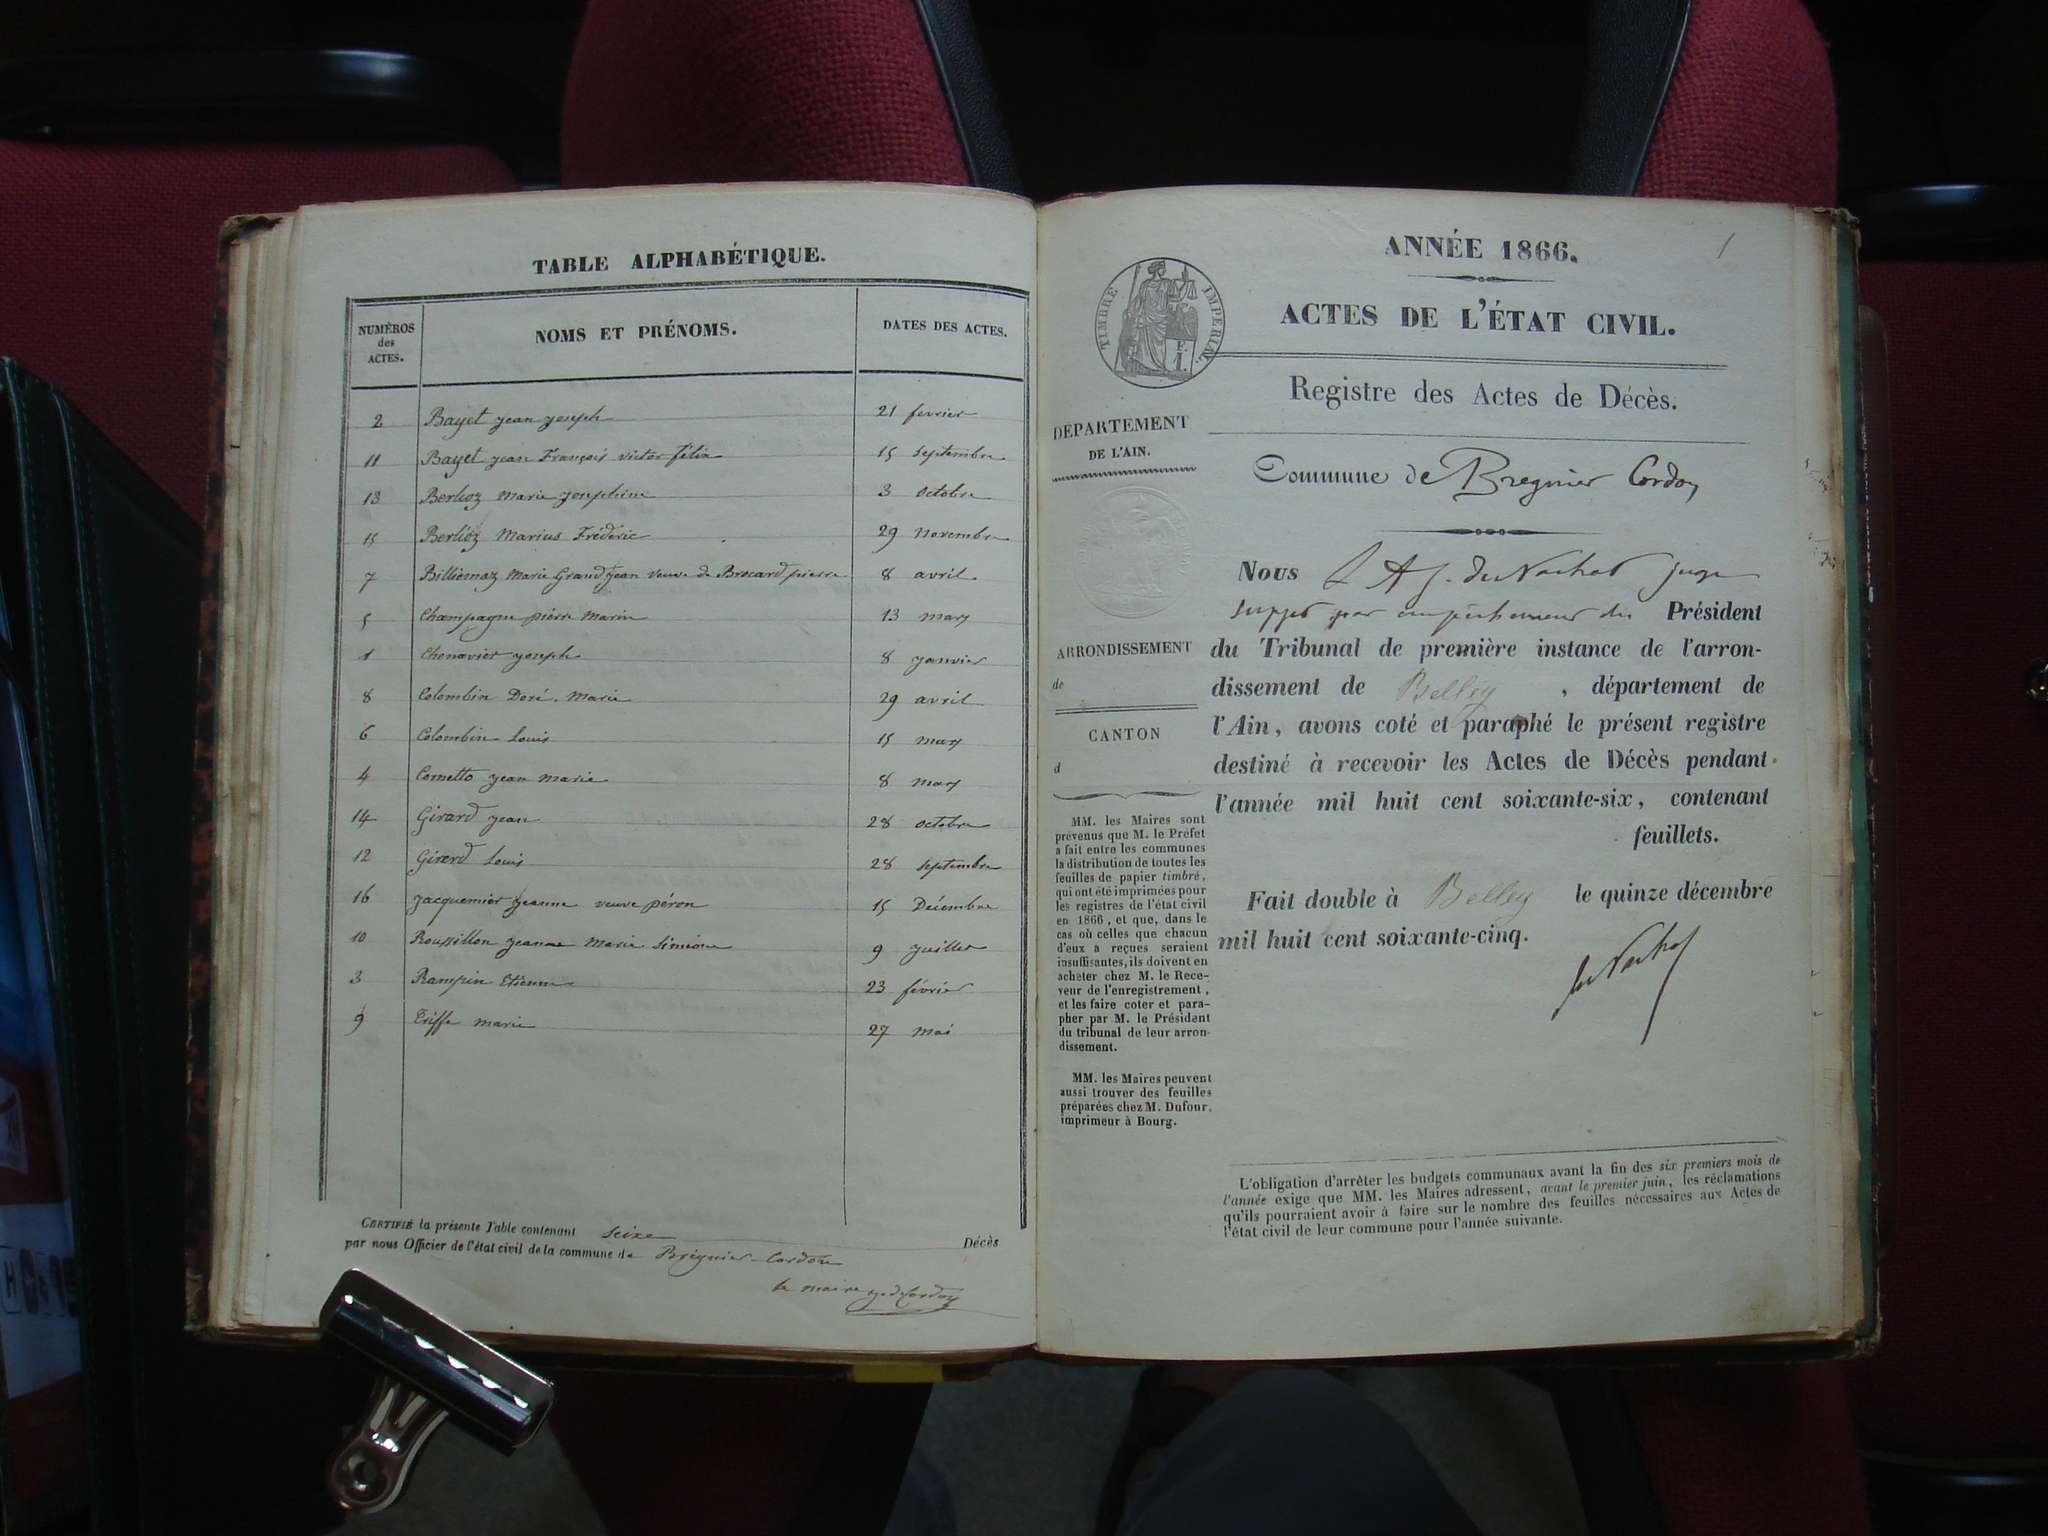 TABLE ALPHABÉTIQUE.
NUMÉROS
des
ACTES.
NOMS ET PRÉNOMS.
DATES DES ACTES.
2 Bayet jean joseph 21 fevrier
11 Bayet jean François victor félix 15 septembre
13 Berlioz Marie josephine 3 octobre
15 Berlioz Marius Fréderic 29 Novembre
7 Billiemaz Marie Grandjean veuve de Brocard pierre 8 avril
5 Champagne pierre Marin 13 mars
1 Chenavier joseph 8 janvier
8 Colombin Doré. Marie 29 avril
6 Colombin Louis 15 mars
4 Cometto jean marie 8 mars
14 Girard jean 28 octobre
12 Girerd Louis 28 septembre
16 jacquemier jeanne veuve péron 15 Décembre
10 Roussillon jeanne Marie Siméone 9 juillet
3 Rampin Etienne 23 février
9 Triffe marie 27 mai
CERTIFIÉ la présente Table contenant seize Décès
par nous Officier de l'état civil de la commune de Brégnier-Cordon
le maire
1
ANNÉE 1866.
ACTES DE L'ÉTAT CIVIL.
TIMBRE IMPÉRIAL.
F.
1.
Registre des Actes de Décès.
DÉPARTEMENT
DE L'AIN.
Commune de Bregnier Cordon
Nous juge
supp par empêchement du Président
ARRONDISSEMENT
de
CANTON
d
du Tribunal de première instance de l'arron-
dissement de Belley , département de
l'Ain, avons coté et paraphé le présent registre
destiné à recevoir les Actes de Décès pendant
l'année mil huit cent soixante-six, contenant
feuillets.
Fait double à Belley le quinze décembre
mil huit cent soixante-cinq.
MM. les Maires sont
prévenus que M. le Préfet
a fait entre les communes
la distribution de toutes les
feuilles de papier timbré,
qui ont été imprimées pour
les registres de l'état civil
en 1866, et que, dans le
cas où celles que chacun
d'eux a reçues seraient
insuffisantes, ils doivent en
acheter chez M. le Rece-
veur de l'enregistrement,
et les faire coter et para-
pher par M. le Président
du tribunal de leur arron-
dissement.
MM. les Maires peuvent
aussi trouver des feuilles
préparées chez M. Dufour,
imprimeur à Bourg.
L'obligation d'arrêter les budgets communaux avant la fin des six premiers mois de
l'année exige que MM. les Maires adressent, avant le premier juin, les réclamations
qu'ils pourraient avoir à faire sur le nombre des feuilles nécessaires aux Actes de
l'état civil de leur commune pour l'année suivante.